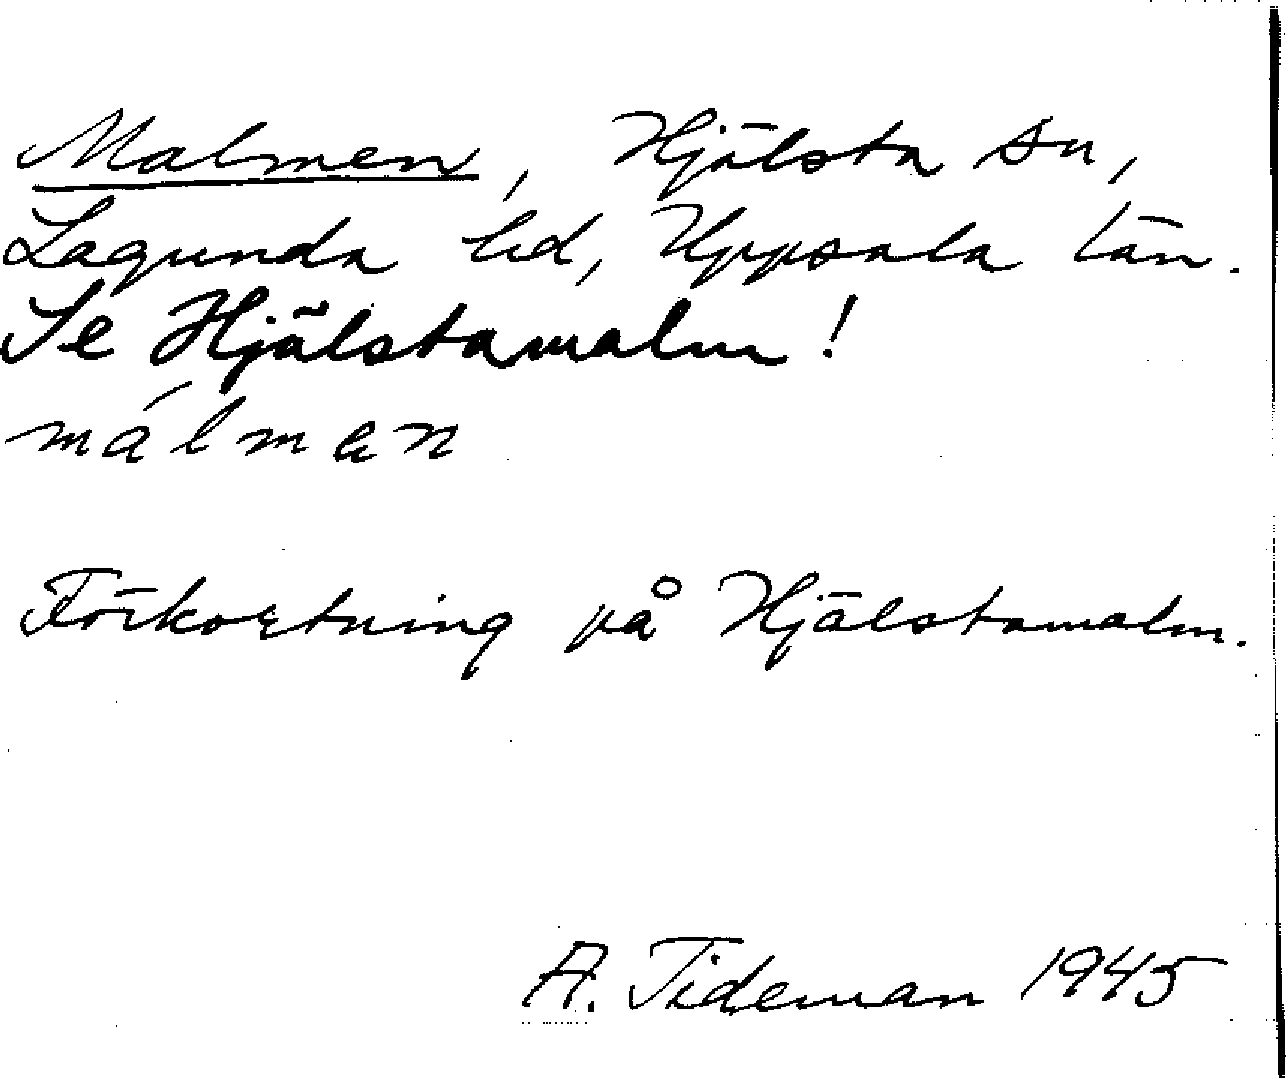 Malmen, Hjälsta sn,
Lagunda hd, Uppsala län.
Se Hjälstamalm!
málmen
Förkortning på Hjälstamalm.
A. Tideman 1945